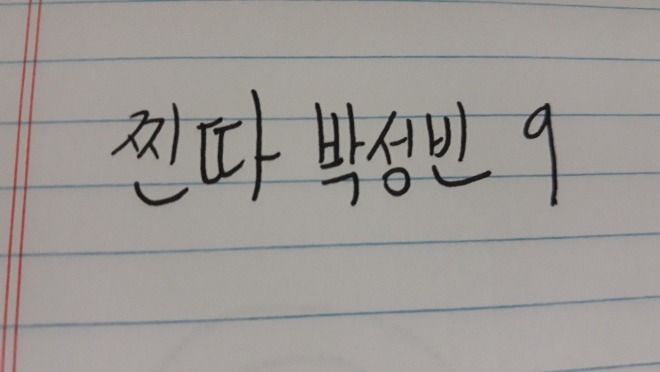 찐따 박성빈 9